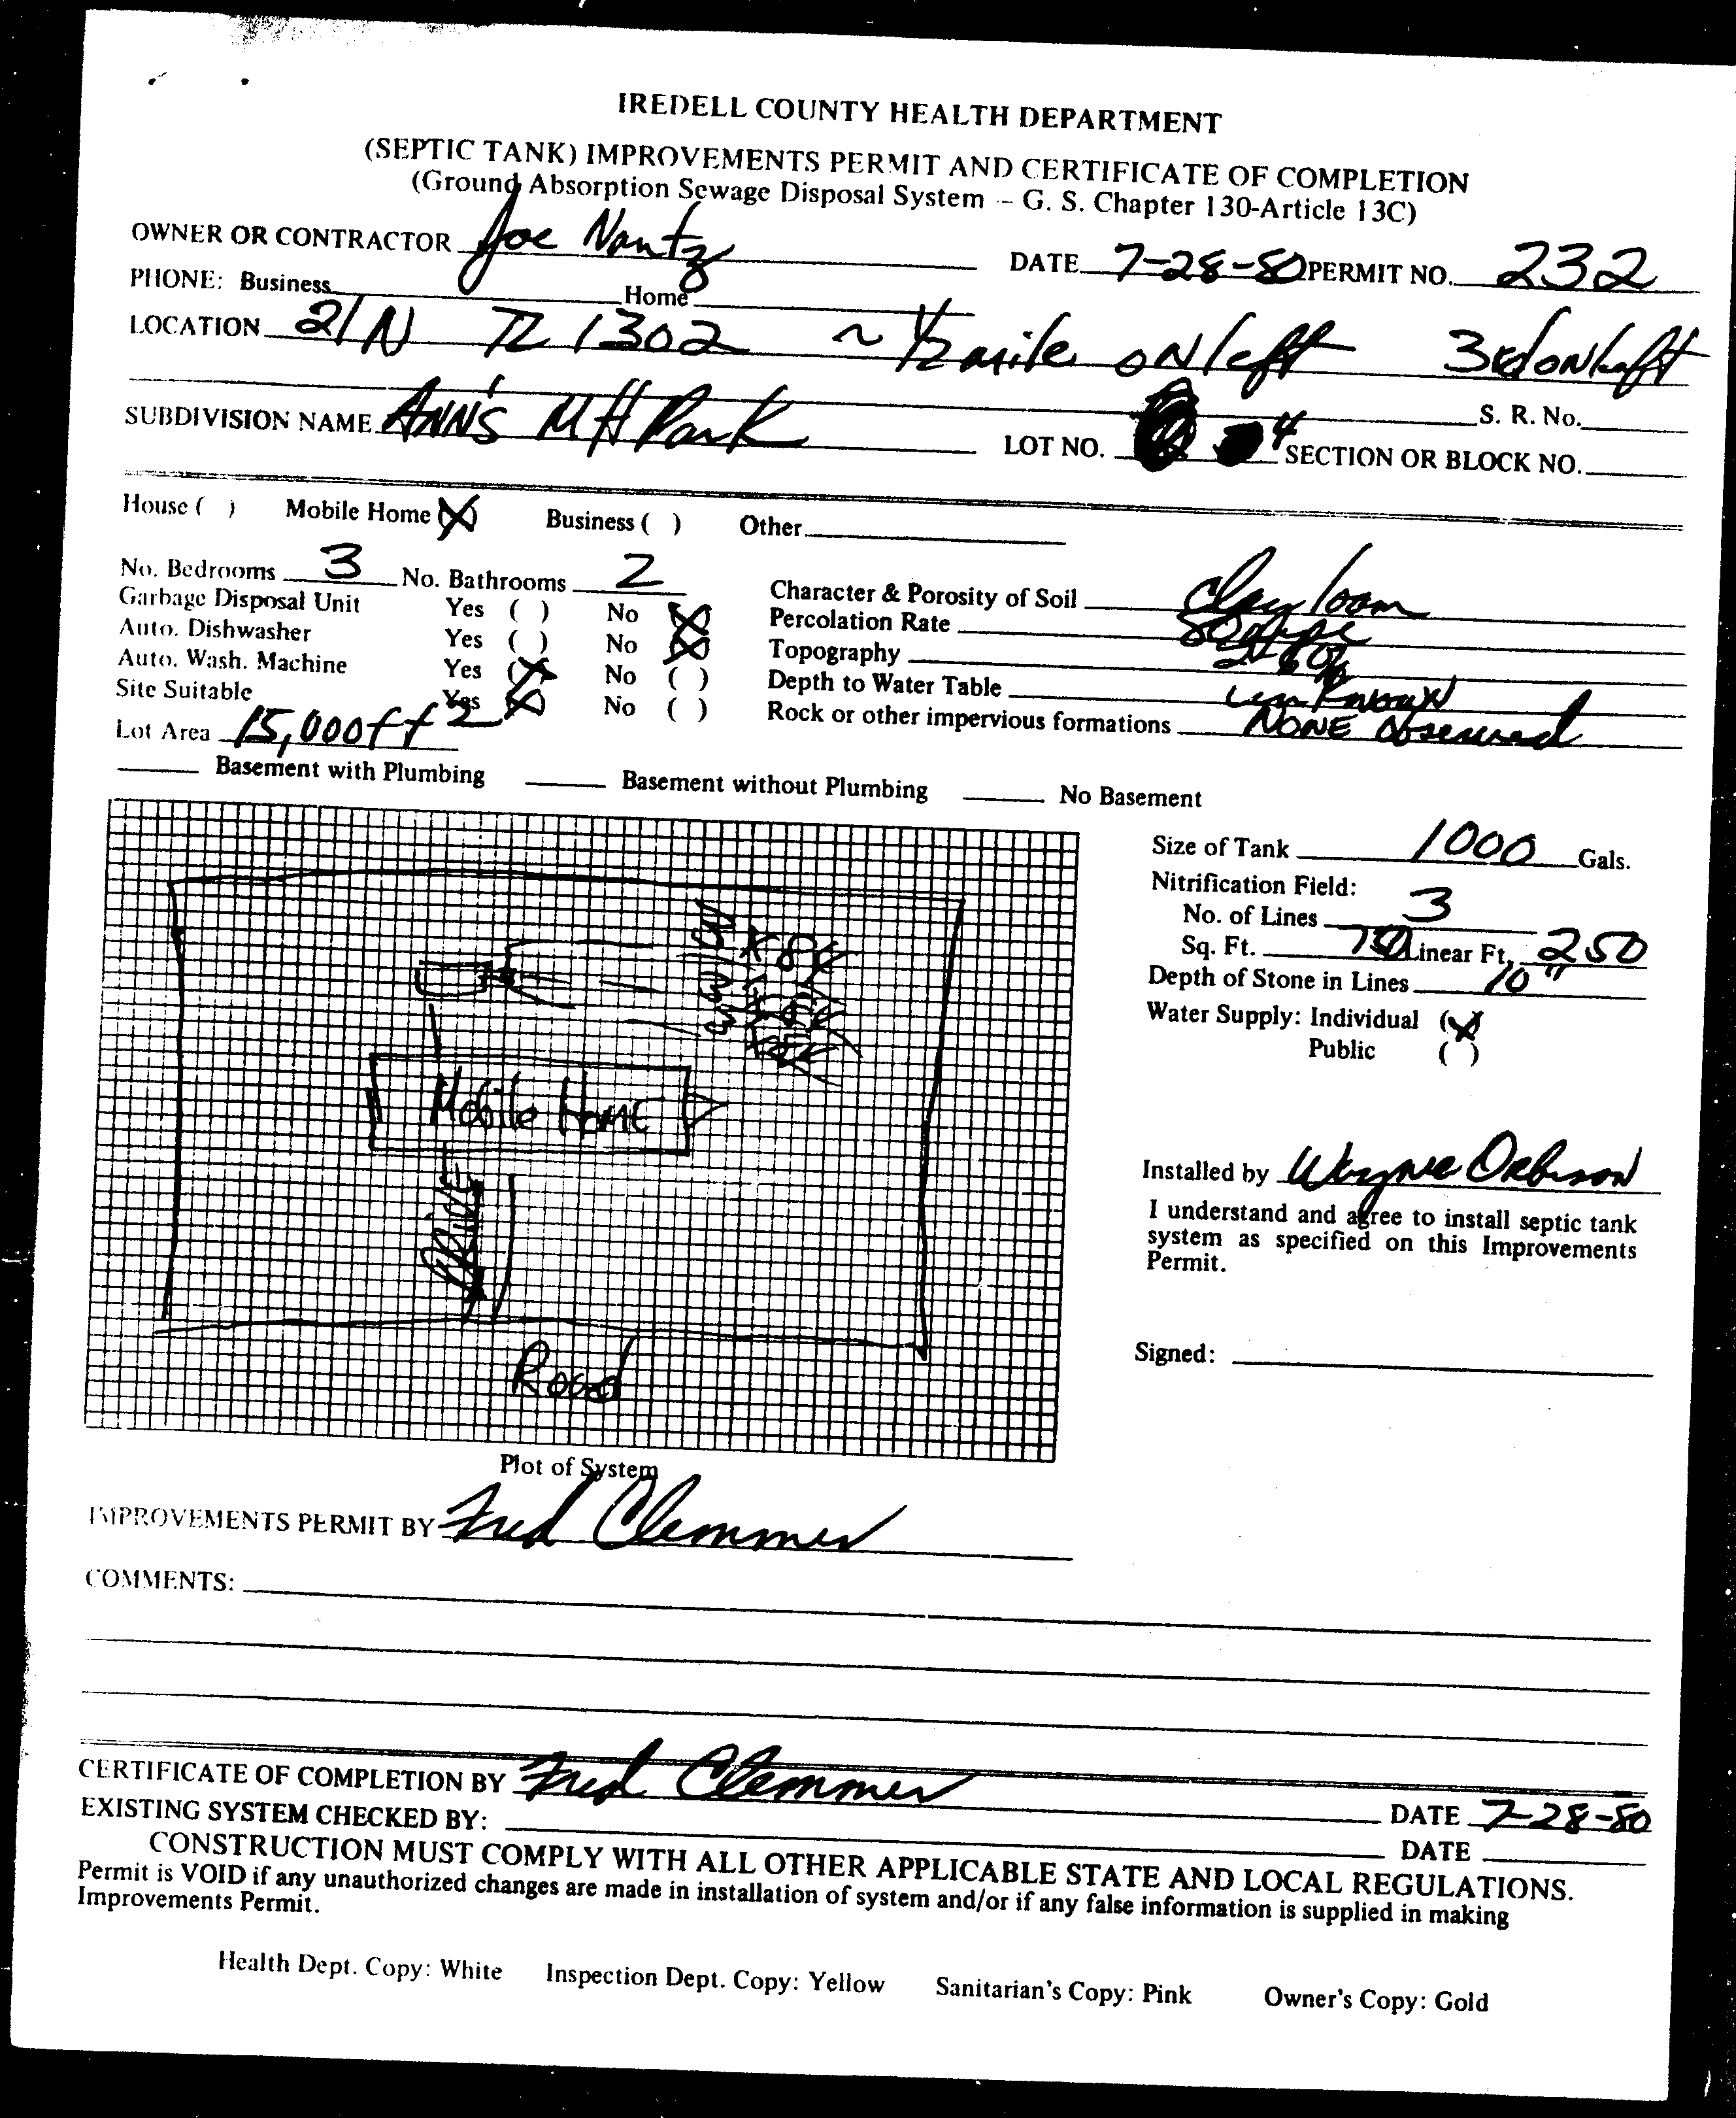 IREDELL COUNTY HEALTH DEPARTMENT
(SEPTIC TANK) IMPROVEMENTS PERMIT AND CERTIFICATE OF COMPLETION
(Ground Absorption Sewage Disposal System -- G. S. Chapter 130-Article 13C)
OWNER OR CONTRACTOR Joe Nantz DATE 7-28-80 PERMIT NO. 232
PHONE: Business Home
LOCATION 21N TL 1302 ~ 1/2 mile on left 3rd on left
S. R. No.
SUBDIVISION NAME ANN'S MH Park LOT NO. 4 SECTION OR BLOCK NO.
House ( ) Mobile Home (X) Business ( ) Other
No. Bedrooms 3 No. Bathrooms 2
Garbage Disposal Unit Yes ( ) No (X)
Auto. Dishwasher Yes ( ) No (X)
Auto. Wash. Machine Yes (X) No ( )
Site Suitable Yes (X) No ( )
Lot Area 15,000 ft 2
Character & Porosity of Soil Clay loam
Percolation Rate
Topography
Depth to Water Table unknown
Rock or other impervious formations NONE observed
Basement with Plumbing Basement without Plumbing No Basement
Size of Tank 1000 Gals.
Nitrification Field:
No. of Lines 3
Sq. Ft. 750 Linear Ft. 250
Depth of Stone in Lines 10"
Water Supply: Individual (X)
Public ( )
Mobile Home
DRIVE
Road
Plot of System
Installed by Wayne Orbison
I understand and agree to install septic tank
system as specified on this Improvements
Permit.
Signed:
IMPROVEMENTS PERMIT BY Fred Clemmer
COMMENTS:
CERTIFICATE OF COMPLETION BY Fred Clemmer DATE 7-28-80
EXISTING SYSTEM CHECKED BY: DATE
CONSTRUCTION MUST COMPLY WITH ALL OTHER APPLICABLE STATE AND LOCAL REGULATIONS.
Permit is VOID if any unauthorized changes are made in installation of system and/or if any false information is supplied in making
Improvements Permit.
Health Dept. Copy: White Inspection Dept. Copy: Yellow Sanitarian's Copy: Pink Owner's Copy: Gold